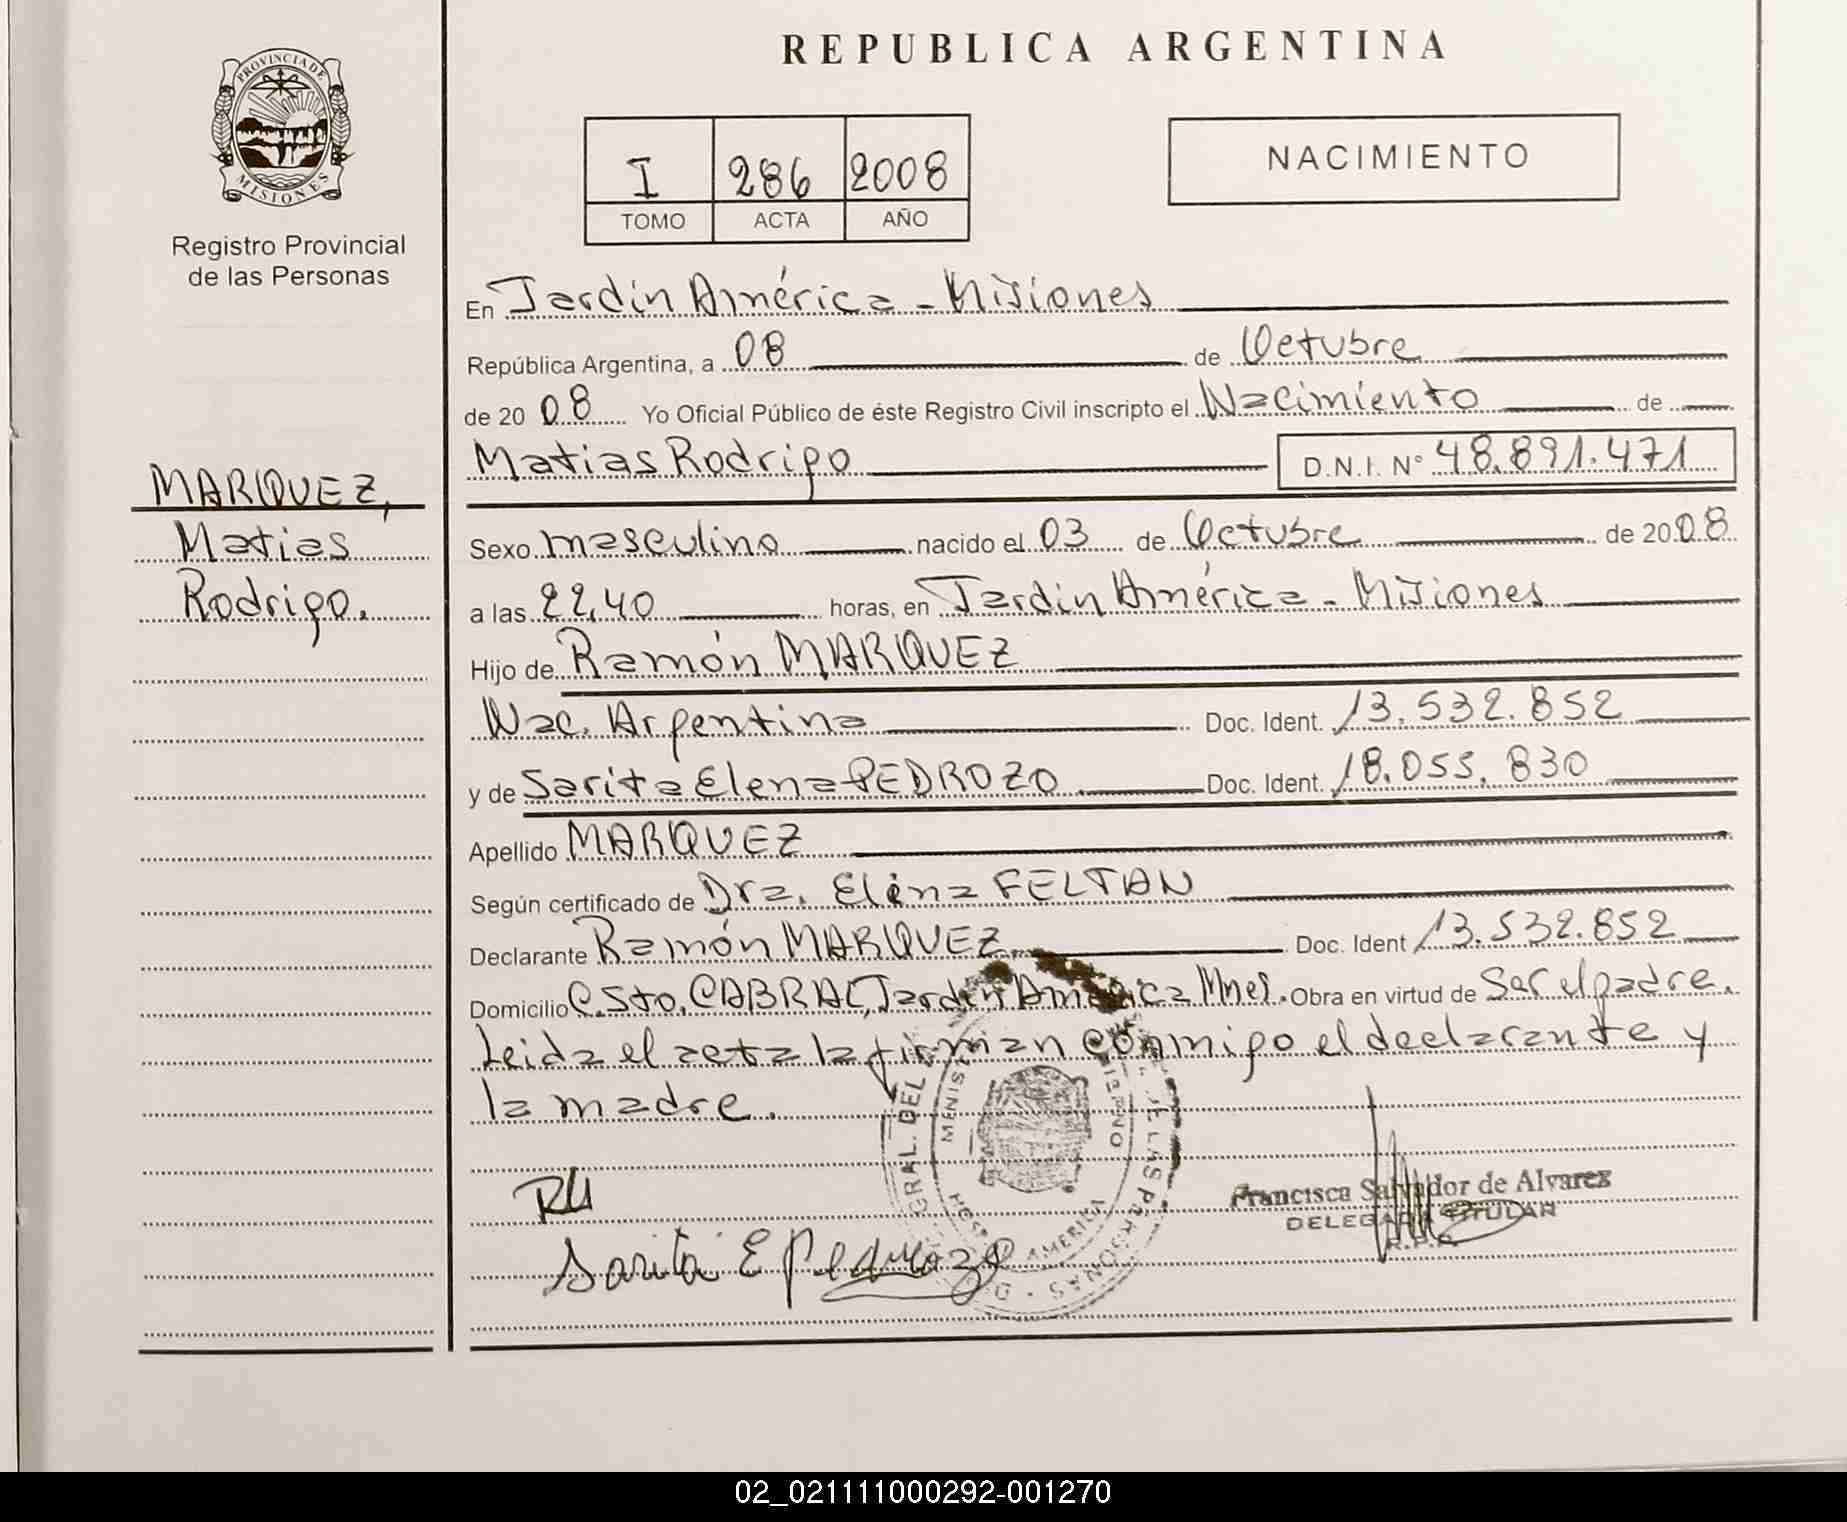 REPUBLICA ARGENTINA
PROVINCIA DE
MISIONES
Registro Provincial
de las Personas
I 286 2008
TOMO ACTA AÑO
NACIMIENTO
MARQUEZ,
Matias
Rodrigo.
En Jardín América - Misiones
República Argentina, a 08 de Octubre
de 20 08 Yo Oficial Público de éste Registro Civil inscripto el Nacimiento de
Matias Rodrigo D.N.I. N° 48.891.471
Sexo masculino nacido el 03 de Octubre de 20 08
a las 22,40 horas, en Jardín América - Misiones
Hijo de Ramón MARQUEZ
Nac. Argentina Doc. Ident. 13.532.852
y de Sarita Elena PEDROZO Doc. Ident. 18.055.830
Apellido MARQUEZ
Según certificado de Dra. Elena FELTAN
Declarante Ramón MARQUEZ Doc. Ident 13.532.852
Domicilio C. Sto. CABRAL, Jardín América Mnes. Obra en virtud de Ser el padre.
Leida el acta la firman conmigo el declarante y
la madre.
RM
Sarita E Pedrozo
GRAL. DEL
AMERICA
Francisca Salvador de Alvarez
DELEGADA TITULAR
R.P.P.
02_021111000292-001270